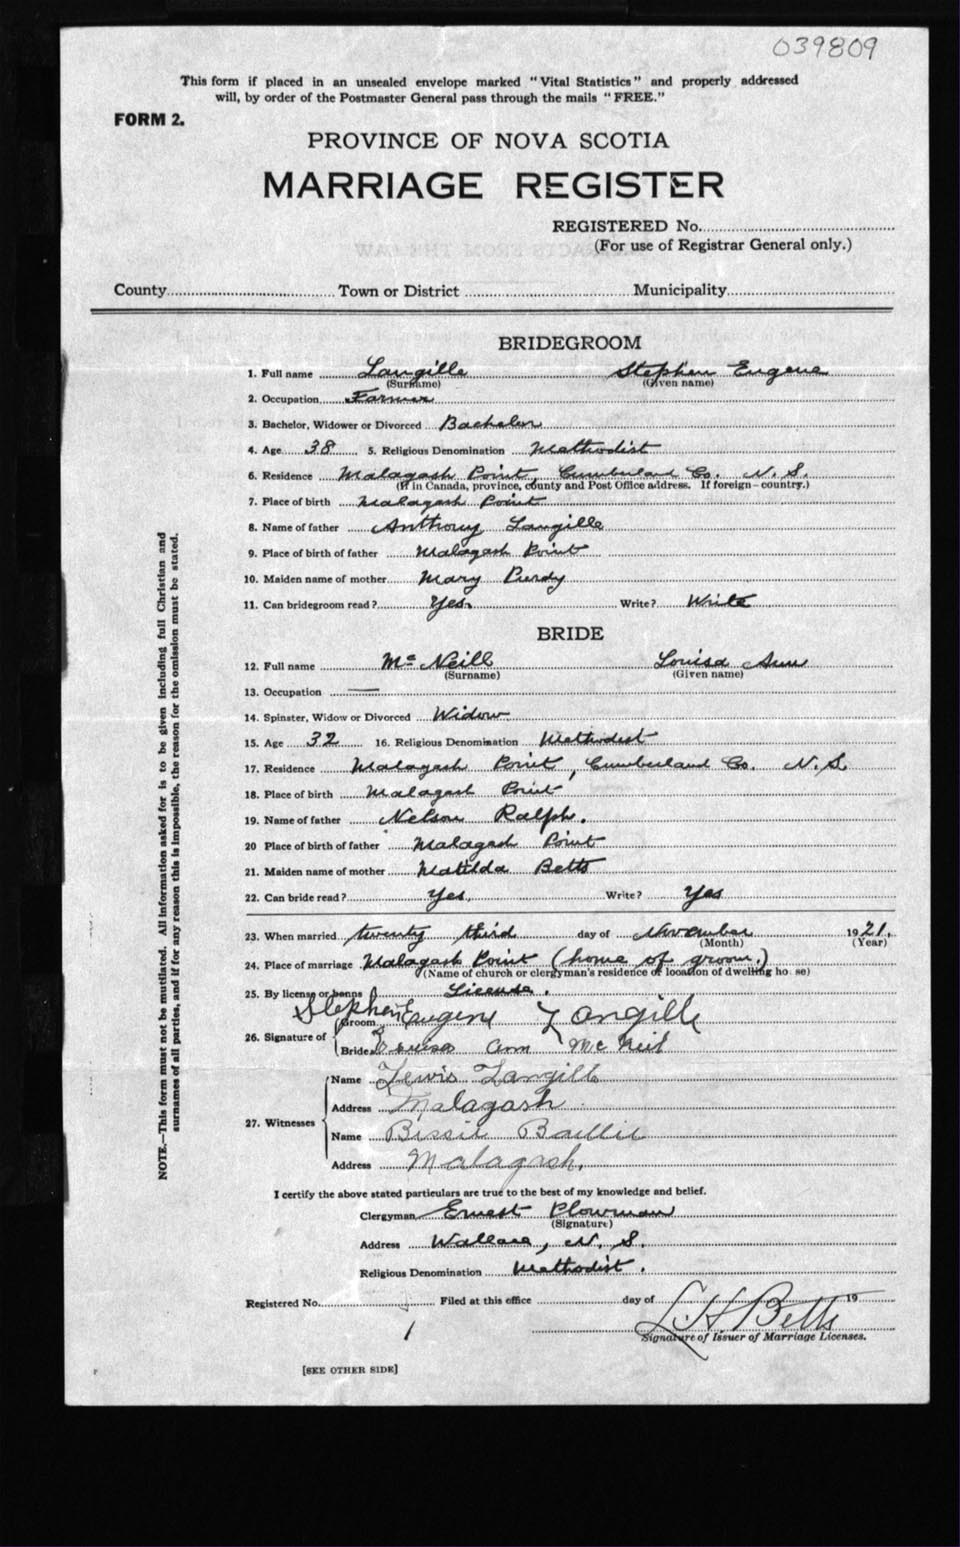 039809
This form if placed in an unsealed envelope marked "Vital Statistics" and properly addressed
will, by order of the Postmaster General pass through the mails "FREE."
FORM 2.
PROVINCE OF NOVA SCOTIA
MARRIAGE REGISTER
REGISTERED No.
(For use of Registrar General only.)
County Town or District Municipality
BRIDEGROOM
1. Full name Langille Stephen Eugene
(Surname) (Given name)
2. Occupation Farmer
3. Bachelor, Widower or Divorced Bachelor
4. Age 38 5. Religious Denomination Methodist
6. Residence Malagash Point, Cumberland Co. N. S.
(If in Canada, province, county and Post Office address. If foreign-country.)
7. Place of birth Malagash Point
8. Name of father Anthony Langille
9. Place of birth of father Malagash Point
10. Maiden name of mother Mary Purdy
11. Can bridegroom read? Yes. Write? Write
BRIDE
12. Full name Mc Neill Louisa Ann
(Surname) (Given name)
13. Occupation —
14. Spinster, Widow or Divorced Widow
15. Age 32 16. Religious Denomination Methodist
17. Residence Malagash Point, Cumberland Co. N. S.
18. Place of birth Malagash Point
19. Name of father Nelson Ralph.
20 Place of birth of father Malagash Point
21. Maiden name of mother Matilda Betts
22. Can bride read? Yes. Write? Yes
23. When married twenty third day of November 1921.
(Month) (Year)
24. Place of marriage Malagash Point (home of groom.)
(Name of church or clergyman's residence or location of dwelling house)
25. By license or banns License.
Groom Stephen Eugene Langille
26. Signature of
Bride Louisa Ann McNeil
Name Lewis Langille
Address Malagash
27. Witnesses
Name Bissie Baillie
Address Malagash.
I certify the above stated particulars are true to the best of my knowledge and belief.
Clergyman Ernest Plowman
(Signature)
Address Wallace, N. S.
Religious Denomination Methodist.
Registered No. Filed at this office day of 19
L H Betts
Signature of Issuer of Marriage Licenses.
[SEE OTHER SIDE]
NOTE.—This form must not be mutilated. All information asked for is to be given including full Christian and
surnames of all parties, and if for any reason this is impossible, the reason for the omission must be stated.